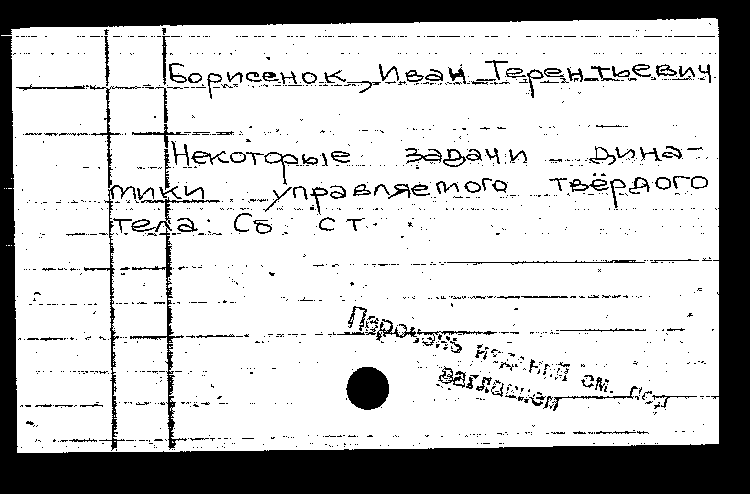 Борисенок, Иван Терентьевич
Некоторые задачи дина-
мики управляемого твёрдого
тела. Сб. ст.
Перечень изданий см. под
заглавием